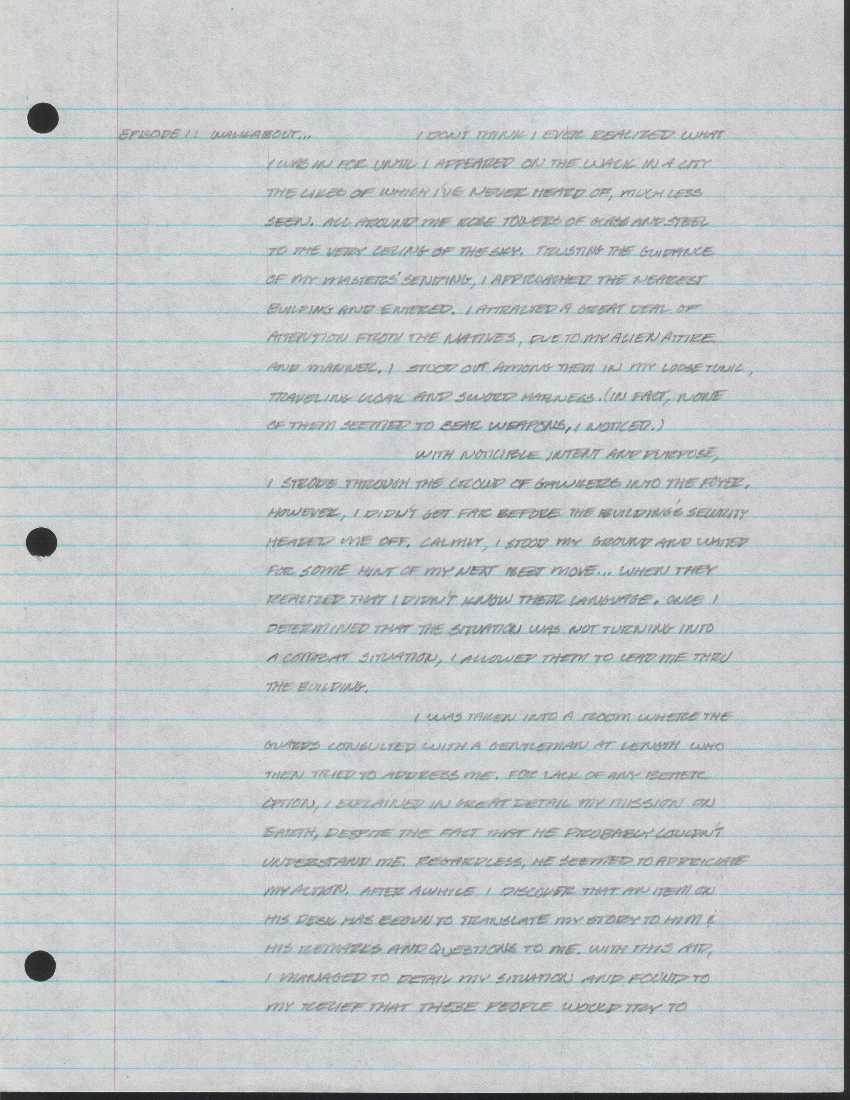 EPISODE 1: WALKABOUT... I DON'T THINK I EVER REALIZED WHAT
I WAS IN FOR UNTIL I APPEARED ON THE WALK IN A CITY
THE LIKES OF WHICH I'VE NEVER HEARD OF, MUCH LESS
SEEN. ALL AROUND ME ROSE TOWERS OF GLASS AND STEEL
TO THE VERY CEILING OF THE SKY. TRUSTING THE GUIDANCE
OF MY MASTERS' SENDING, I APPROACHED THE NEAREST
BUILDING AND ENTERED. I ATTRACTED A GREAT DEAL OF
ATTENTION FROM THE NATIVES, DUE TO MY ALIEN ATTIRE
AND MANNER. I STOOD OUT AMONG THEM IN MY LOOSE TUNIC,
TRAVELING CLOAK AND SWORD HARNESS. (IN FACT, NONE
OF THEM SEEMED TO BEAR WEAPONS, I NOTICED.)
WITH NOTICIBLE INTENT AND PURPOSE,
I STRODE THROUGH THE CROWD OF GAWKERS INTO THE FOYER.
HOWEVER, I DIDN'T GET FAR BEFORE THE BUILDING'S SECURITY
HEADED ME OFF. CALMLY, I STOOD MY GROUND AND WAITED
FOR SOME HINT OF MY NEXT BEST MOVE... WHEN THEY
REALIZED THAT I DIDN'T KNOW THEIR LANGUAGE. ONCE I
DETERMINED THAT THE SITUATION WAS NOT TURNING INTO
A COMBAT SITUATION, I ALLOWED THEM TO LEAD ME THRU
THE BUILDING.
I WAS TAKEN INTO A ROOM WHERE THE
GUARDS CONSULTED WITH A GENTLEMAN AT LENGTH WHO
THEN TRIED TO ADDRESS ME. FOR LACK OF ANY BETTER
OPTION, I EXPLAINED IN GREAT DETAIL MY MISSION ON
EARTH, DESPITE THE FACT THAT HE PROBABLY COULDN'T
UNDERSTAND ME. REGARDLESS, HE SEEMED TO APPRICIATE
MY ACTION. AFTER AWHILE I DISCOVER THAT AN ITEM ON
HIS DESK HAS BEGUN TO TRANSLATE MY STORY TO HIM &
HIS REMARKS AND QUESTIONS TO ME. WITH THIS AID,
I MANAGED TO DETAIL MY SITUATION AND FOUND TO
MY RELIEF THAT THESE PEOPLE WOULD TRY TO